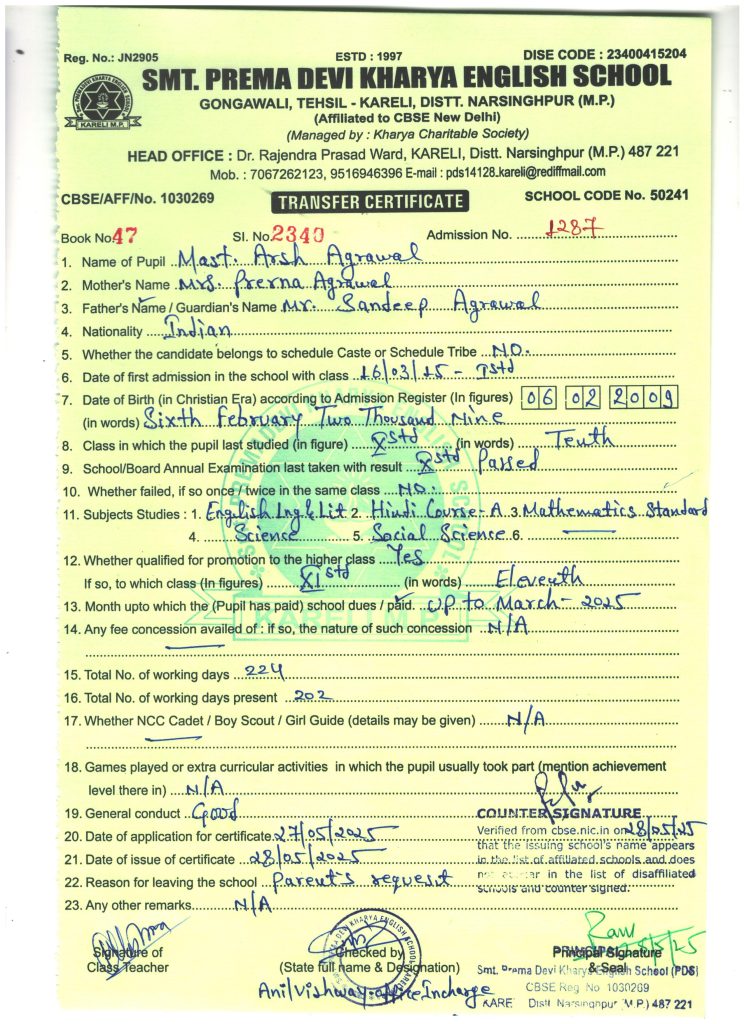 Reg. No.: JN2905 ESTD : 1997 DISE CODE : 23400415204
SMT. PREMA DEVI KHARYA ENGLISH SCHOOL
GONGAWALI, TEHSIL - KARELI, DISTT. NARSINGHPUR (M.P.)
(Affiliated to CBSE New Delhi)
(Managed by : Kharya Charitable Society)
KARELI M.P.
HEAD OFFICE : Dr. Rajendra Prasad Ward, KARELI, Distt. Narsinghpur (M.P.) 487 221
Mob. : 7067262123, 9516946396 E-mail : pds14128.kareli@rediffmail.com
CBSE/AFF/No. 1030269 TRANSFER CERTIFICATE SCHOOL CODE No. 50241
Book No. 47 Sl. No. 2340 Admission No. 1287
1. Name of Pupil Mast. Arsh Agrawal
2. Mother's Name Mrs. Prerna Agrawal
3. Father's Name / Guardian's Name Mr. Sandeep Agrawal
4. Nationality Indian
5. Whether the candidate belongs to schedule Caste or Schedule Tribe NO.
6. Date of first admission in the school with class 16/03/15 - Istd
7. Date of Birth (in Christian Era) according to Admission Register (In figures) 06 02 2009
(in words) Sixth February Two Thousand Nine
8. Class in which the pupil last studied (in figure) Xstd (in words) Tenth
9. School/Board Annual Examination last taken with result Xstd Passed
10. Whether failed, if so once / twice in the same class NO.
11. Subjects Studies : 1. English Lng & Lit 2. Hindi Course-A 3. Mathematics Standard
4. Science 5. Social Science 6.
12. Whether qualified for promotion to the higher class Yes
If so, to which class (In figures) XIstd (in words) Eleventh
13. Month upto which the (Pupil has paid) school dues / paid. Up to March-2025
14. Any fee concession availed of : if so, the nature of such concession N/A
15. Total No. of working days 224
16. Total No. of working days present 202
17. Whether NCC Cadet / Boy Scout / Girl Guide (details may be given) N/A
18. Games played or extra curricular activities in which the pupil usually took part (mention achievement
level there in) N/A
19. General conduct Good
COUNTER SIGNATURE
20. Date of application for certificate 27/05/2025
Verified from cbse.nic.in on 28/05/25
that the issuing school's name appears
21. Date of issue of certificate 28/05/2025
in the list of affiliated schools and does
22. Reason for leaving the school Parent's request
not appear in the list of disaffiliated
schools and counter signed.
23. Any other remarks. N/A
Signature of
Class Teacher
Checked by
(State full name & Designation)
Principal Signature
& Seal
28/5/25
PRINCIPAL
Smt. Prema Devi Kharya English School (PDS)
CBSE Reg. No 1030269
KARELI Distt. Narsinghpur (M.P.) 487 221
Anil Vishway-office Incharge